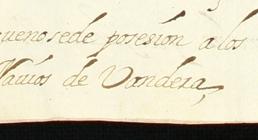 uenosede posesión a los
Navios de Vandera,